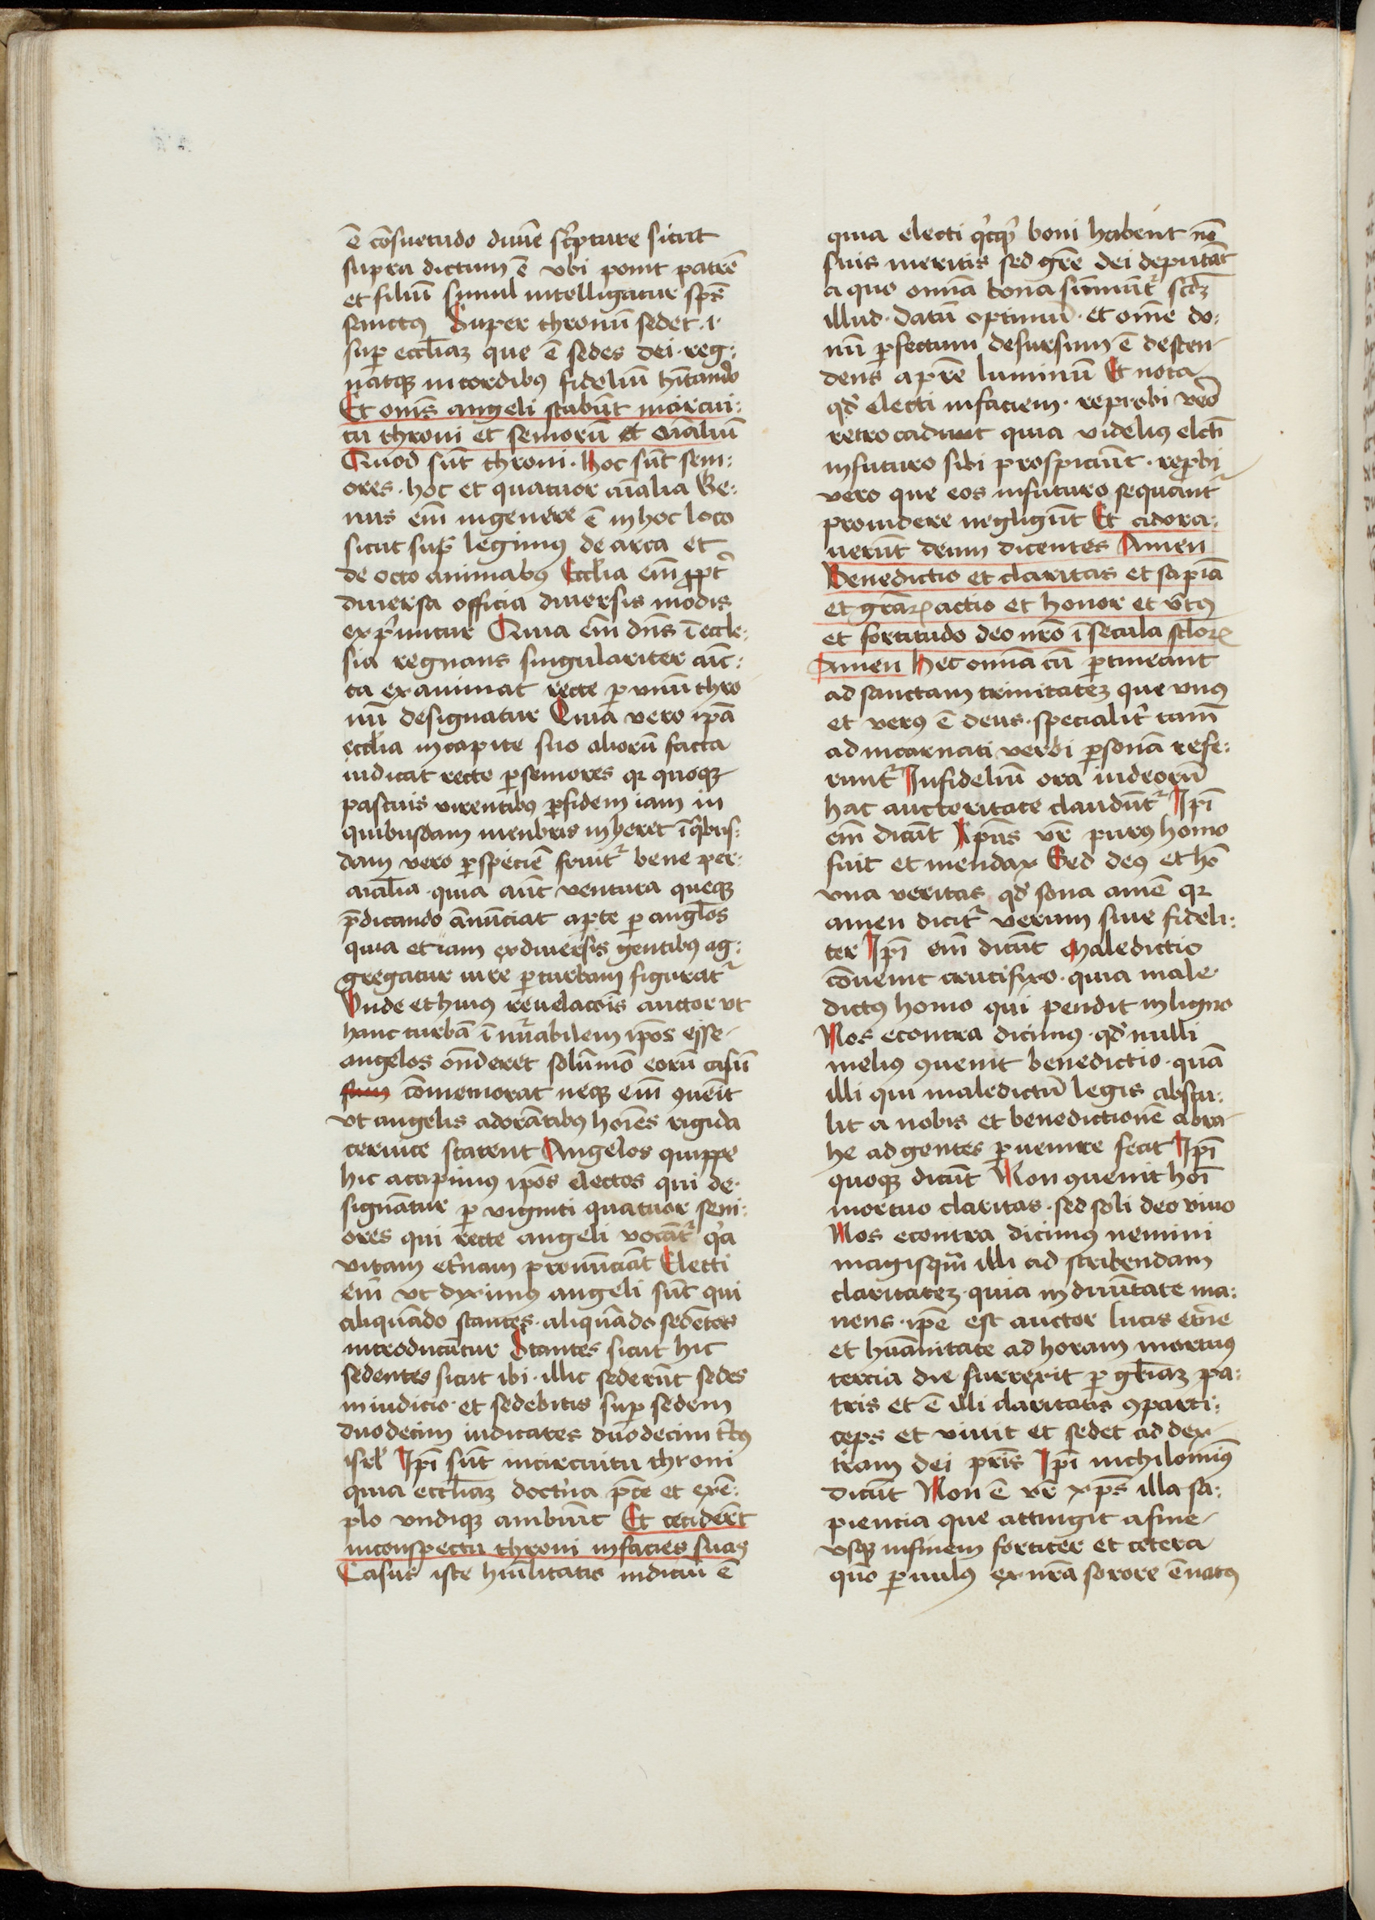 ē cōsuetudo diuīe sc̄pture sicut
supra dictum ē vbi ponit patrē
et filiū simul intelligatur sp̄s
sanctꝰ Super thronū sedet .i.
suꝑ eccl̄iaꝫ que ē sedes dei . reg:
natqꝫ in cordibꝰ fideliū hītando
Et om̄s angeli stabūt in circui:
tu throni et seniorū et aīaliū
Quod sūt throni . hoc sūt seni:
ores . hoc et quatuor aīalia Ge:
nus em̄ in genere ē in hoc loco
sicut sup̄ legimus de arca et
de octo animabus Eccl̄ia em̄ ꝓpt̄
diuersa officia diuersis modis
exp̄mitur Quia em̄ dn̄s ī eccle:
sia regnans singulariter cūc:
ta examinat recte ꝑ vnū thro
nū designatur Quia vero ip̄a
eccl̄ia in capite suo aliorū facta
iudicat recte ꝑ seniores qꝛ quoqꝫ
pascuis virentibꝰ ꝑ fidem iam in
quibusdam menbris inheret ī q̄bus:
dam vero ꝑ speciē fruit᷑ bene per
aīalia . quia cūc ventura queqꝫ
p̄dicando ānūciat aꝑte ꝑ angl̄os
quia etiam ex diuersis gentibus ag:
gregatur iure ꝑ turbam figurat᷑
Vnde et huiꝰ reuelacōis auctor vt
hanc turbā ī nūabilem ip̄os esse
angelos ōnderet solūmō eorū casū
cōmemorat neqꝫ em̄ ꝯuēit
vt angelis adorātibus hoīes rigida
ceruice starent Angelos quippe
hic accipimus ip̄os electos qui de
signātur ꝑ viginti quatuor seni:
ores qui recte angeli vocāt᷑ q̄a
vitam et̄nam pronūciāt Electi
em̄ vt diximꝰ angeli sūt qui
aliquādo stantes . aliquādo sedētes
introducātur Stantes sicut hic
sedentes sicut ibi . illic sederūt sedes
in iudicio . et sedebitis suꝑ sedem
duodecim iudicātes duodecim tbꝰ
isrl̄ Ip̄i sūt in circuitu throni
quia eccl̄iaꝫ doct̄na p̄ce et exē:
plo vndiqꝫ ambiūt Et ceciderūt
in conspectu throni in facies suas
Casus iste hūilitatis indiciū ē
quia electi q̄cqꝫ boni habent nō
suis meritis sed gr̄e dei deputāt
a quo omīa bona sūmūt᷑ scd̄ꝫ
illud . datū optimū . et om̄e do:
nū ꝑfectum desursum ē descen
dens a pr̄e luminū Et nota
qd̄ electi in faciem . reprobi vero
retro cadunt quia videlicꝫ elc̄ti
in futuro sibi prospiciūt . reprobi
vero que eos in futuro sequant᷑
prouidere negligūt Et adora:
uerūt deum dicentes Amen
Benedictio et claritas et sapīa
et gr̄aꝝ actio et honor et vtꝰ
et fortitudo deo nr̄o ī secula sclōꝝ
Amen Hec omīa cū ꝑtineant
ad sanctam trinitateꝫ que vnꝰ
et verꝰ ē deus . specialit̄ tam̄
ad incarnati verbi ꝑsonā refe:
runt᷑ Infideliū ora iudeorū
hac auctoritate claudūt᷑ Ip̄i
em̄ dicūt Xp̄us vr̄ purꝰ homo
fuit et mendax Sed deꝰ et hō
vna veritas qd̄ sona amē qꝛ
amen dicit᷑ verum siue fideli:
ter Ip̄i em̄ dicūt Maledictio
cōuenit crucifixo . quia male
dictꝰ homo qui pendit in ligno
Nos econtra dicimus . qd̄ nulli
melius ꝯuenit benedictio . quā
illi qui maledictū legis abstu:
lit a nobis et benedictionē abra
he ad gentes ꝑuenire fecit Ip̄i
quoqꝫ dicūt Non ꝯuenit hoī
mortuo claritas . sed soli deo viuo
Nos econtra dicimus nemini
magisqꝫ illi ad scribendam
claritateꝫ . quia in diuītate ma:
nens . ip̄e est auctor lucis et̄ne
et huānitate ad horam mortuꝰ
tercia die surrexit ꝑ gl̄iaꝫ pa:
tris et ē illi claritatis ꝯparti:
ceps et viuit et sedet ad dex
tram dei pr̄is Ip̄i nichilominꝰ
dicūt Non ē vr̄ xp̄s illa sa:
piencia que attingit a fine
vsqꝫ in finem fortiter et cetera
quō ꝑuulus ex nr̄a sorore ē natꝰ